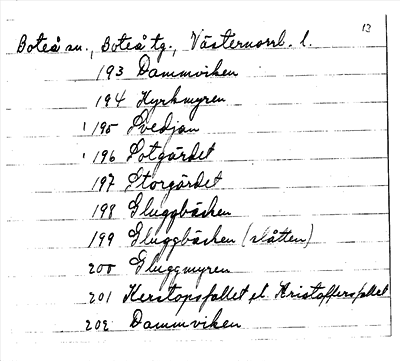 13
Boteå sn., Boteå tg., Västernorrl. l.
193 Dammviken
194 Kyrkmyren
195 Svedjan
196 Potgärdet
197 Storgärdet
198 Gluggbäcken
199 Gluggbäcken (slåtten)
200 Gluggmyren
201 Kerstopsfallet el. Kristoffersfallet
202 Dammviken